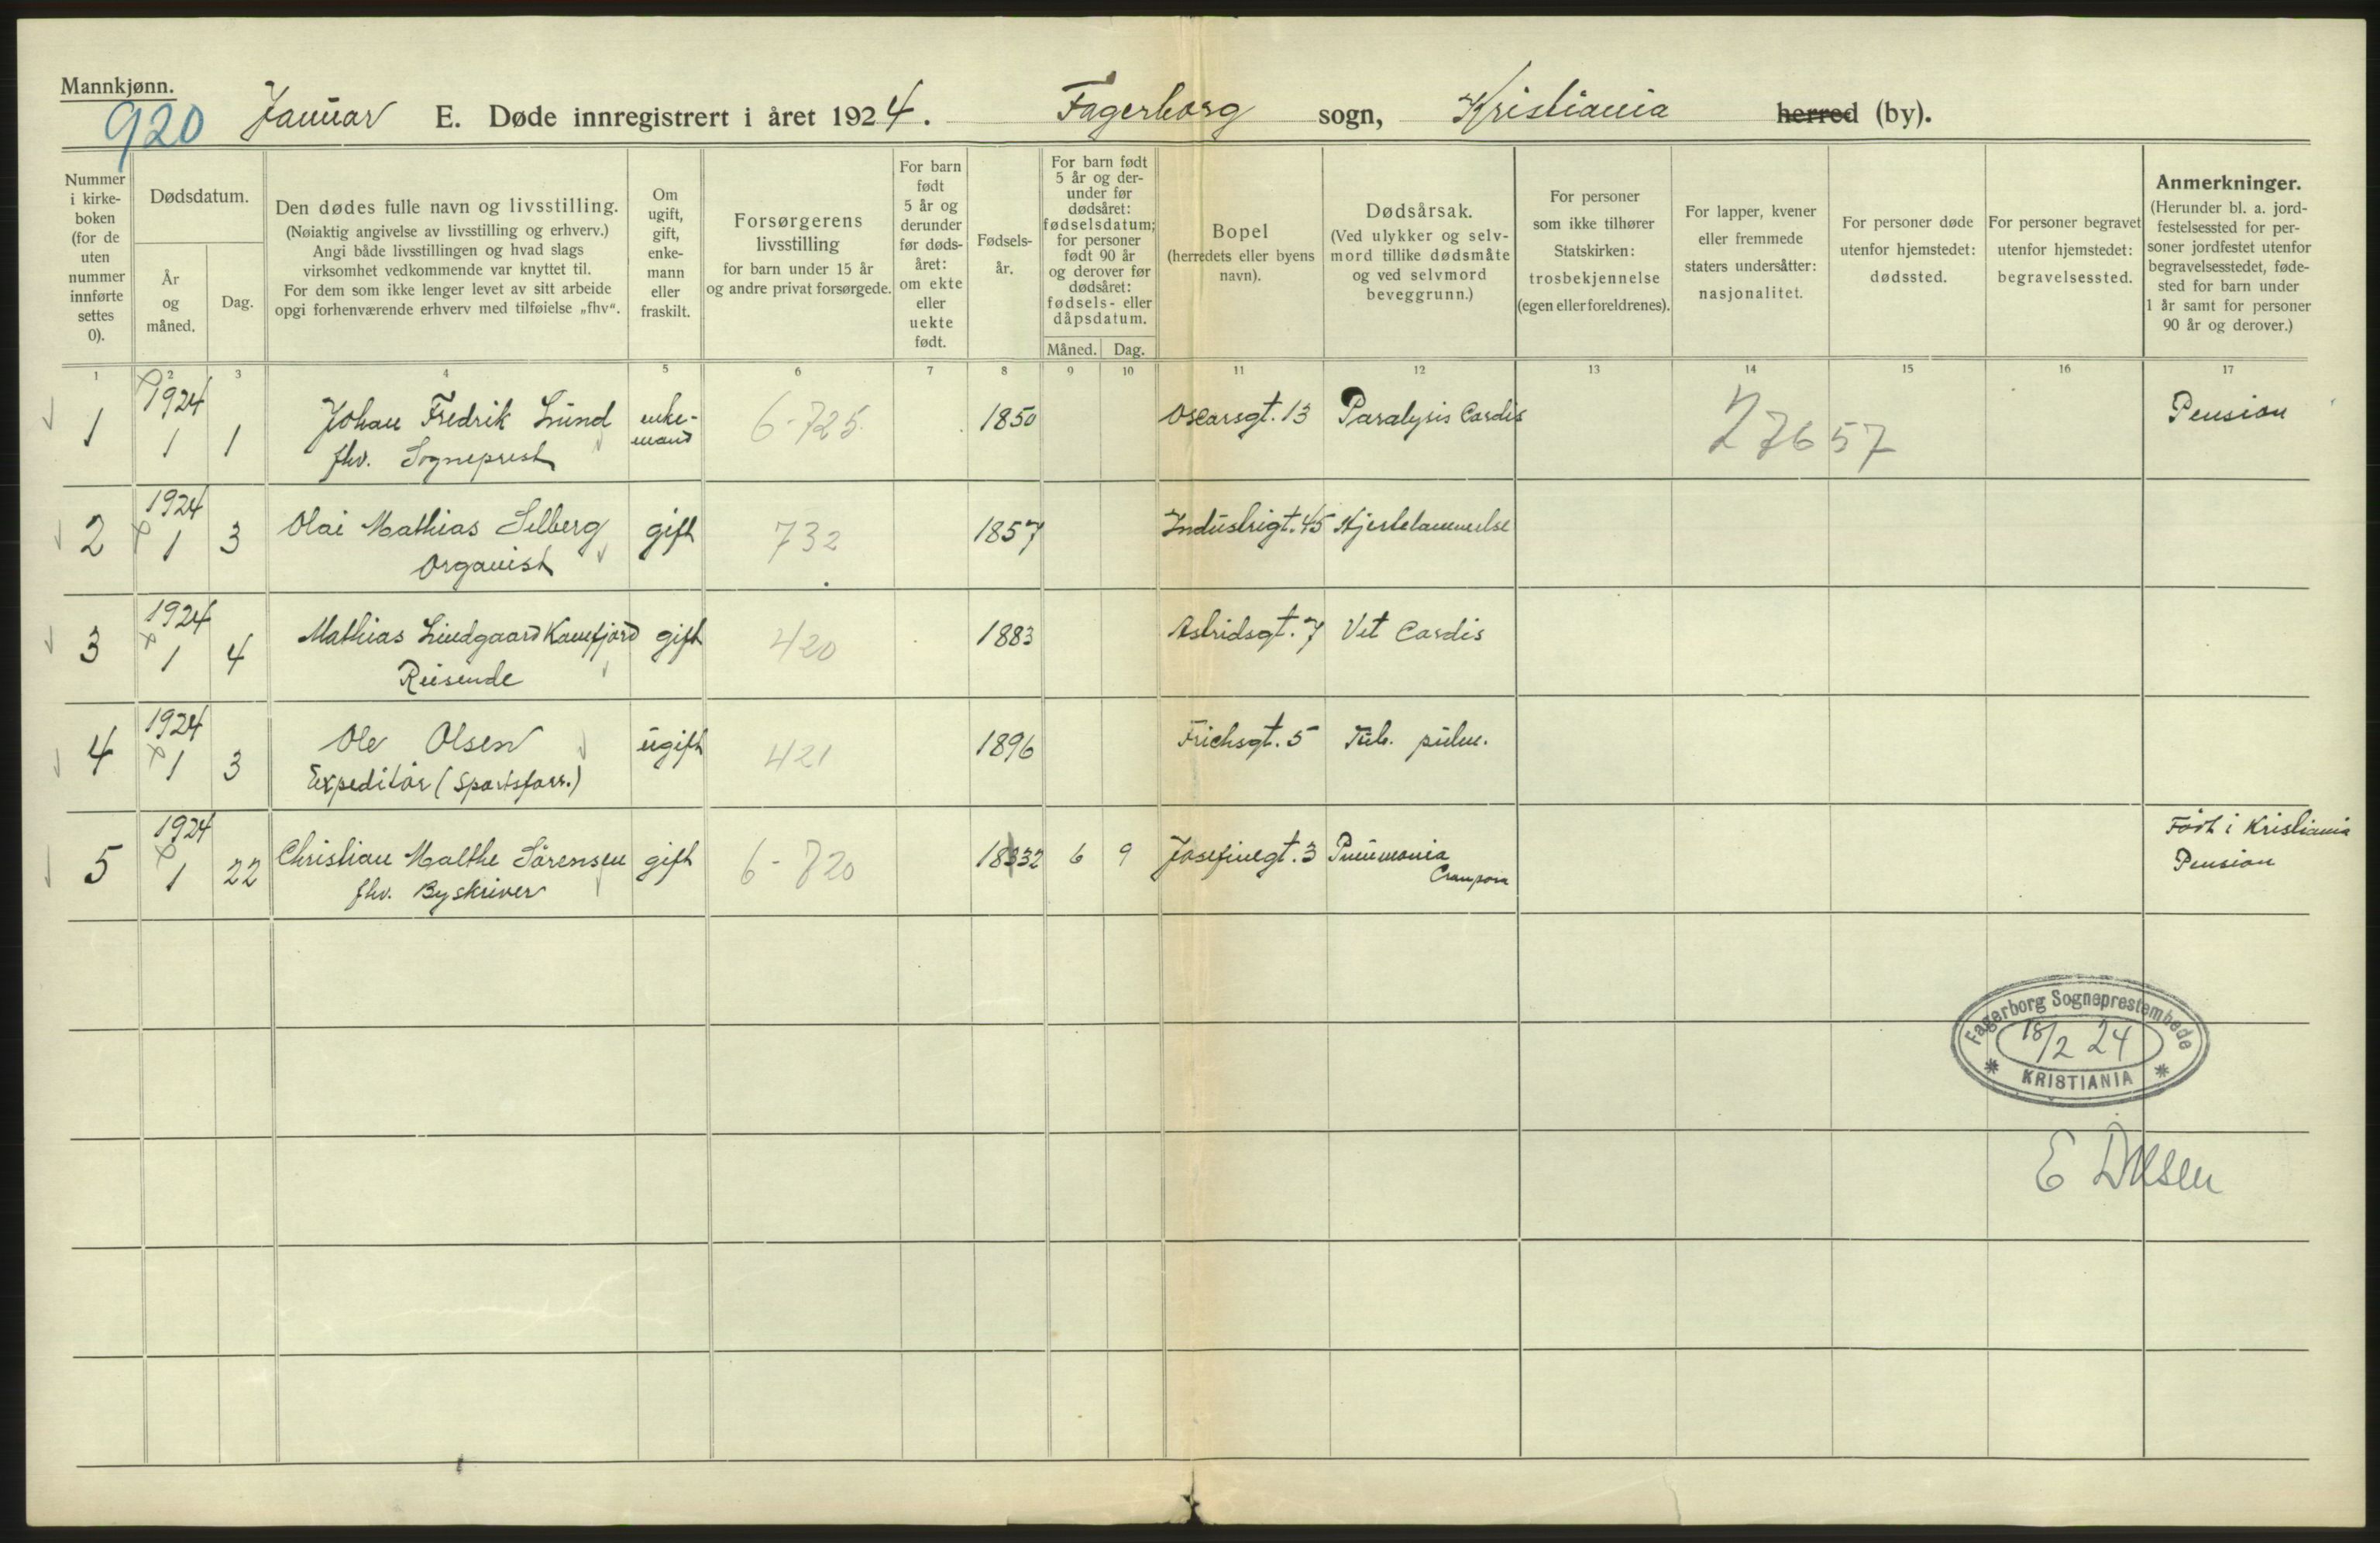 Mannkjønn.
920 Januar E. Døde innregistrert i året 1924. Fagerborg sogn, Kristiania herred (by).
Nummer i kirke-boken (for de uten nummer innførte settes 0).
Dødsdatum.
År og måned.
Dag.
Den dødes fulle navn og livsstilling.
(Nøiaktig angivelse av livsstilling og erhverv.)
Angi både livsstillingen og hvad slags
virksomhet vedkommende var knyttet til.
For dem som ikke lenger levet av sitt arbeide
opgi forhenværende erhverv med tilføielse „fhv“.
Om ugift, gift, enke-mann eller fraskilt.
Forsørgerens
livsstilling
for barn under 15 år
og andre privat forsørgede.
For barn født 5 år og derunder før døds-året: om ekte eller uekte født.
Fødsels-år.
For barn født 5 år og der-under før dødsåret: fødselsdatum; for personer født 90 år og derover før dødsåret: fødsels- eller dåpsdatum.
Måned. Dag.
Bopel
(herredets eller byens
navn).
Dødsårsak.
(Ved ulykker og selv-
mord tillike dødsmåte
og ved selvmord
beveggrunn.)
For personer
som ikke tilhører
Statskirken:
trosbekjennelse
(egen eller foreldrenes).
For lapper, kvener
eller fremmede
staters undersåtter:
nasjonalitet.
For personer døde
utenfor hjemstedet:
dødssted.
For personer begravet
utenfor hjemstedet:
begravelsessted.
Anmerkninger.
(Herunder bl. a. jord-
festelsessted for per-
soner jordfestet utenfor
begravelsesstedet, føde-
sted for barn under
1 år samt for personer
90 år og derover.)
1 2 3 4 5 6 7 8 9 10 11 12 13 14 15 16 17
1 1924 1 1 Johan Fredrik Lund enke- 6-725 1850 Oscarsgt. 13 Paralysis Cordis 27657 Pension
fhv. Sogneprest mand
2 1924 1 3 Olai Mathias Selberg gift 732 1857 Industrigt. 45 Hjertelammelse
Organist
3 1924 1 4 Mathias Lindgaard Kamfjord gift 420 1883 Astridsgt. 7 Vit Cordis
Reisende
4 1924 1 3 Ole Olsen ugift 421 1896 Frichsgt. 5 Tub. pulm.
Expeditør (Sportsforr.)
5 1924 1 22 Christian Malthe Sørensen gift 6-820 1832 6 9 Josefinegt. 3 Pneumonia Født i Kristiania
fhv. Byskriver Crouposa Pension
Fagerborg Sogneprestembede
18/2 24
* KRISTIANIA *
E